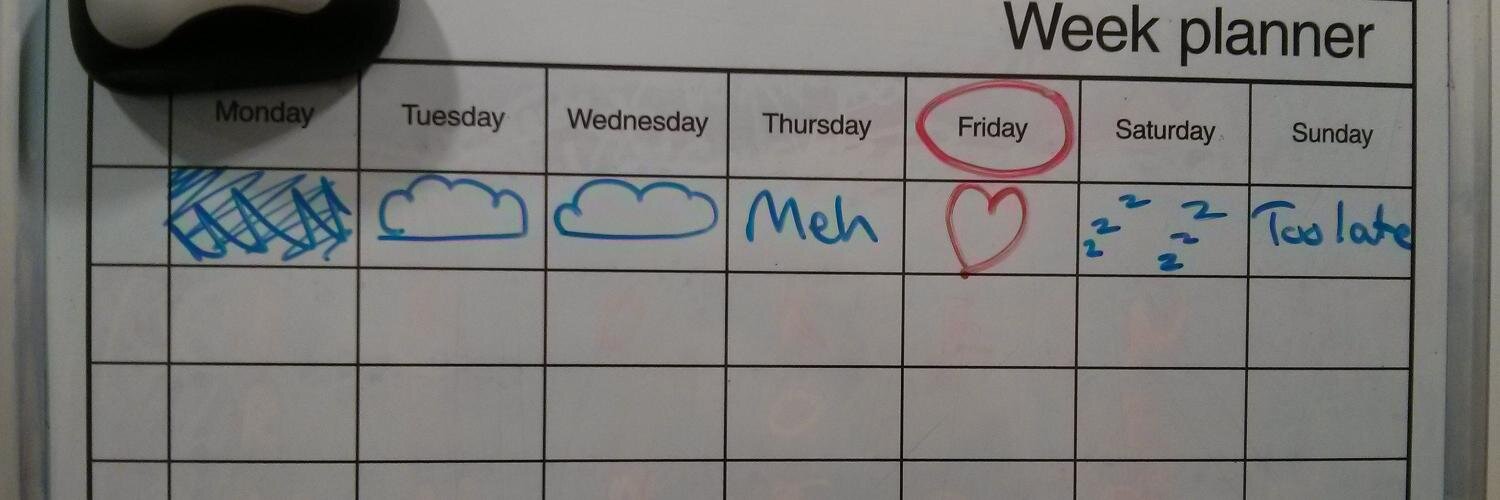 Week planner
Monday Tuesday Wednesday Thursday Friday Saturday Sunday
Meh z z z z z z Too late